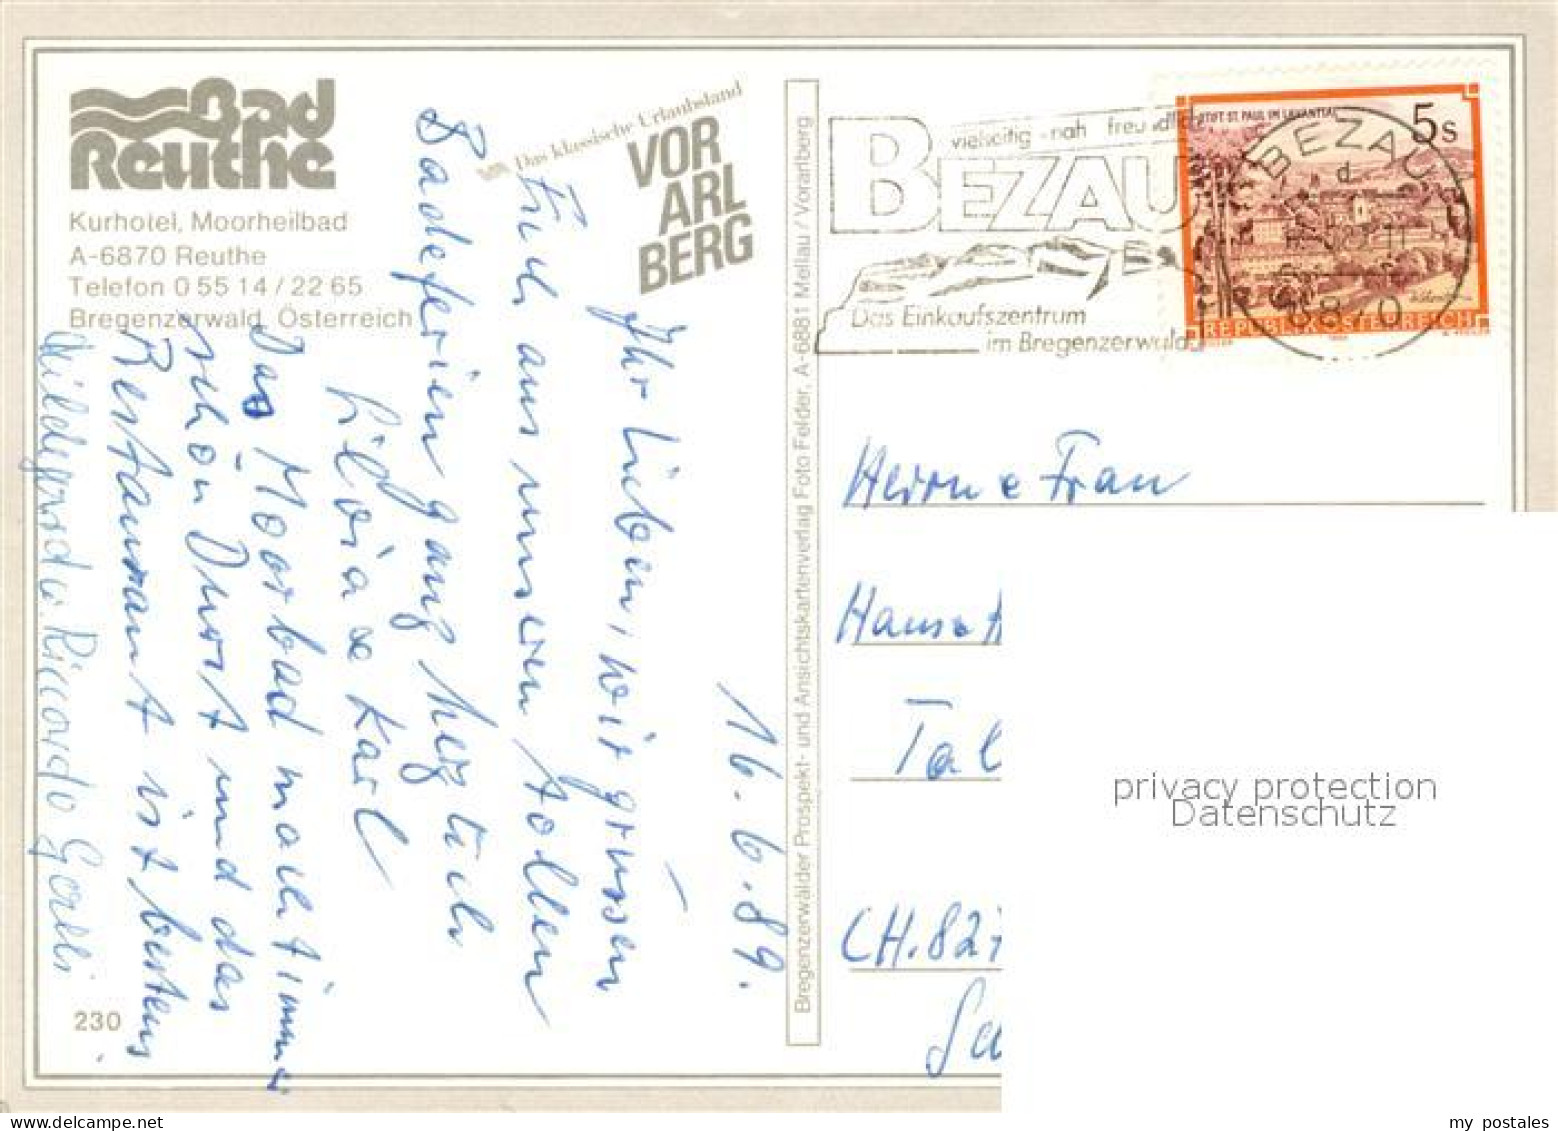 Bad
Reuthe
Kurhotel, Moorheilbad
A-6870 Reuthe
Telefon 0 55 14 / 22 65
Bregenzerwald, Österreich
Das klassische Urlaubsland
VOR
ARL
BERG
16.6.89.
Ihr Lieben, wir grüssen
Euch aus unseren tollen
Badeferien ganz herzlich
Silvia & Karl
Das Moorbad macht immer
schön Durst und das
Restaurant ist bestens
Hildegard u. Riccardo
230
Bregenzerwälder Prospekt- und Ansichtskartenverlag Foto Felder, A-6881 Mellau / Vorarlberg
vielseitig nah freundlich
BEZAU
Das Einkaufszentrum
im Bregenzerwald
STIFT ST. PAUL IM LAVANTTAL
5 S
REPUBLIK ÖSTERREICH
BEZAU
d
6870
Herrn & Frau
Hans &
Tal
CH.82
privacy protection
Datenschutz
my postales